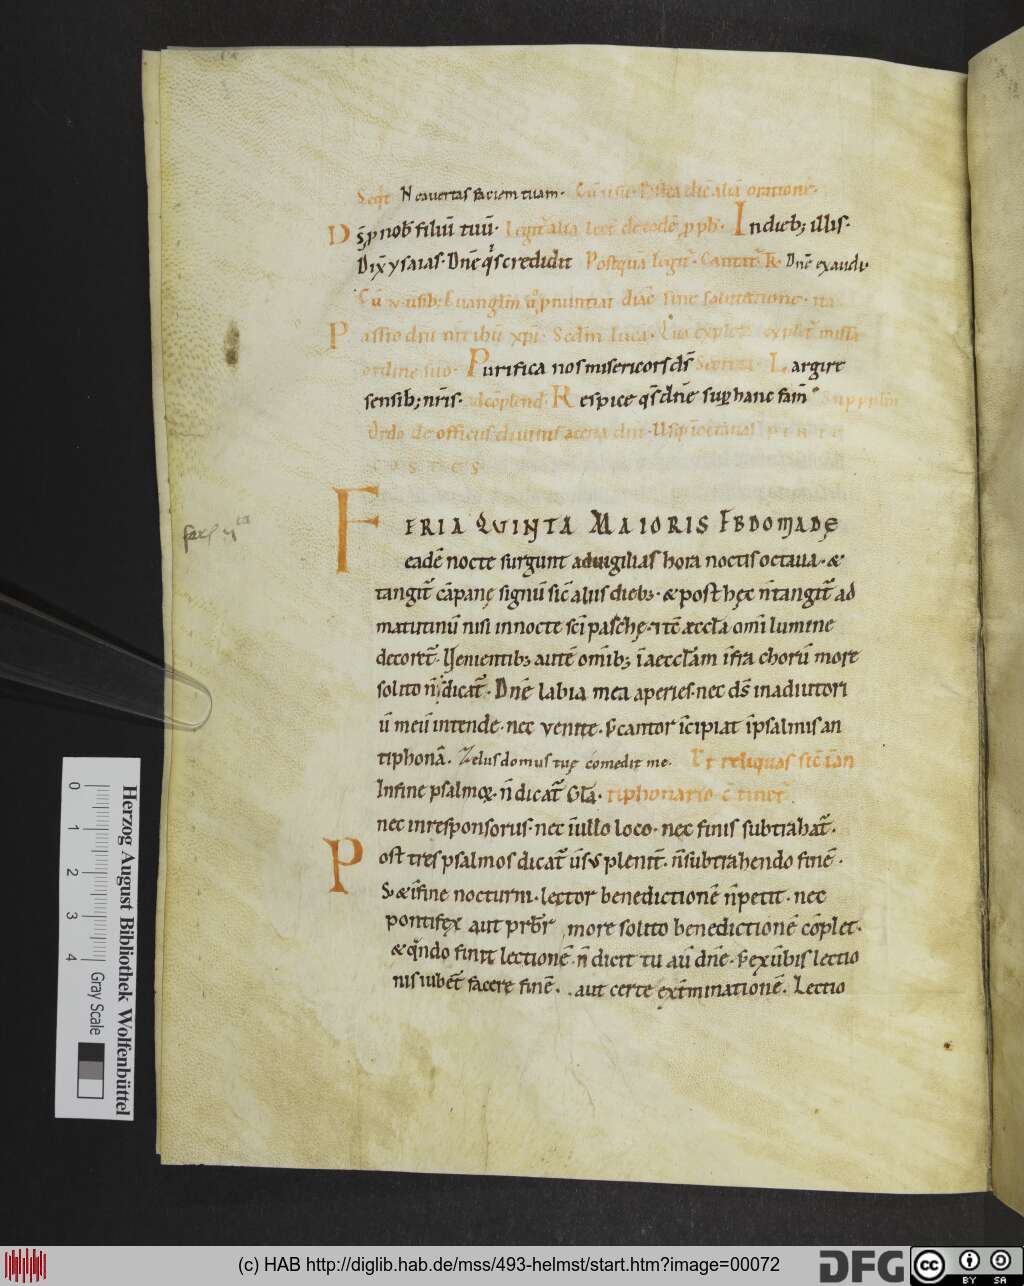 Seqt̄ Ne avertas faciem tuam. Cū vsū. Postea dic aliā orationē.
Ds̄ p nob filiū tuū. Legit̄ alia lect de eodē ppħ. In dieb; illis.
Dix̄ ysaias. Dn̄e qͥs credidit Postqua legit̄. Cantat̄ Tr̄. Dn̄e exaudi
Cū v. usib; Euangl̄m
Passio dn̄i nr̄i ihū xp̄i. Sedm̄ luca.
ordine suo. Purifica nos misericors ds̄ Secreta. Largire
sensib; nr̄is. adcōplend. Respice qs̄ dn̄e suꝑ hanc fam̄
Ordo de officiis divinis a cena dn̄i. Usq; ī octavas PENTE
COSTES
FERIA QUINTA MAIORIS EBDOMADĘ
eadē nocte surgunt ad vigilias hora noctis octaua. &
tangit̄ cāpanę signū sic̄ aliis dieb;. & post hęc n̄ tangit̄ ad
matutinū nisi in nocte sc̄i paschę. ite ęccl̄a om̄i lumine
decoret̄. Uenientib; autē om̄ib; ī aeccl̄am īfra chorū more
solito n̄ dicat̄. Dn̄e labia mea aperies. nec ds̄ in adiutori
ū meū intende. nec venite. s; cantor īcipiat ī psalmis an
tiphonā. Zelus domus tuę comedit me. Et reliquas sic̄ ī an
In fine psalmoꝝ. n̄ dicat̄ Gl̄a. tiphonario c̄tinet̄
nec in responsoriis. nec ī ullo loco. nęc finis subtrahat̄.
Post tres psalmos dicat̄ v̄s & plenit̄. n̄ subtrahendo finē.
S; & ī fine nocturni. lector benedictionē n̄ petit. nec
pontifęx aut pr̄br̄ more solito benedictionē cōplet.
& qn̄do finit lectionē. n̄ dicit tu aū dn̄e. s; ex ūbis lectio
nis iubet̄ facere finē. aut certe ext̄minationē. Lectio
Herzog August Bibliothek Wolfenbüttel
Gray Scale
0 1 2 3 4
(c) HAB http://diglib.hab.de/mss/493-helmst/start.htm?image=00072
DFG
cc BY SA